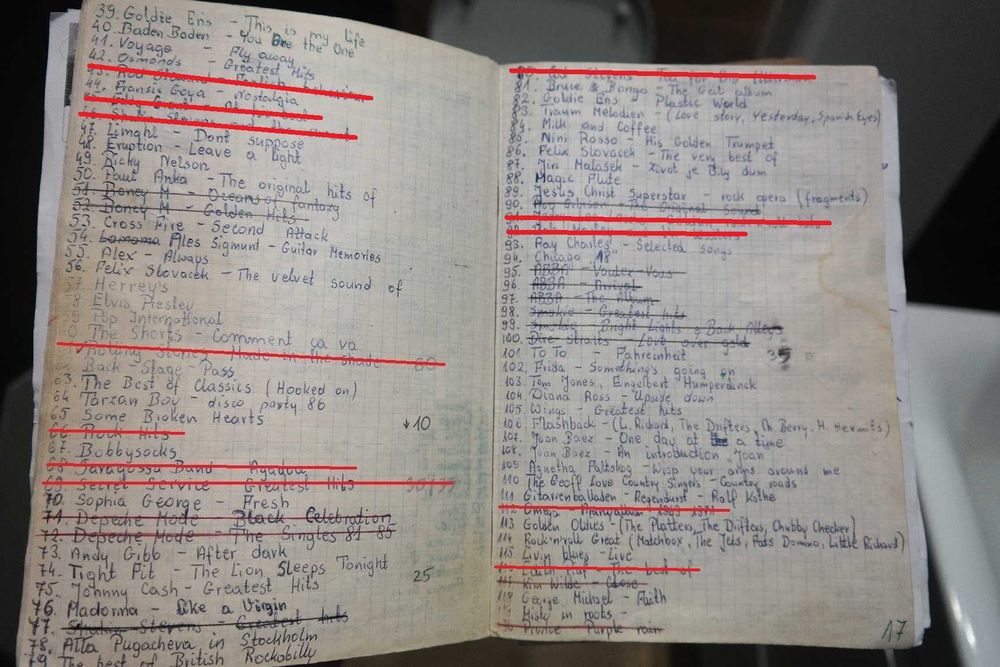 39. Goldie Ens - This is my life
40. Baden Baden - You Are the One
41. Voyage - Fly away
42. Osmonds - Greatest Hits
43.
44. Fransis Goya - Nostalgia
45.
46.
47. Limahl - Dont suppose
48. Eruption - Leave a light
49. Ricky Nelson
50. Paul Anka - The original hits of
51. Boney M - Oceans of fantazy
52. Boney M - Golden Hits
53. Cross Fire - Second Attack
54. Ales Sigmunt - Guitar Memories
55. Alex - Always
56. Felix Slovacek - The velvet sound of
57. Herrey's
58 Elvis Presley
59 Pop International
60 The Shorts - Comment ça va
Rolling Stones - Made in the shade 60
62 Back - Stage - Pass
63. The Best of Classics (Hooked on)
64 Tarzan Boy - disco party 86
65 Some Broken Hearts ↓10
66 Rock Hits
67. Bobbysocks
68 Saragossa Band - Agadou
69 Secret Service - Greatest Hits
70. Sophia George - Fresh
71. Depeche Mode - Black Celebration
72. Depeche Mode - The Singles 81-85
73. Andy Gibb - After dark
74. Tight Fit - The Lion Sleeps Tonight
75. Johnny Cash - Greatest Hits 25
76. Madonna - Like a Virgin
77. Shakin Stevens - Greatest hits
78. Alla Pugacheva in Stockholm
79. The best of British Rockabilly
80. Cat Stevens - Tea for the tillerman
81. Bruce & Bongo - The Geil album
82. Goldie Ens - Plastic World
83. Traum Melodien - (Love story, Yesterday, Spanish Eyes)
84. Milk and Coffee
85. Nini Rosso - His Golden Trumpet
86. Felix Slovacek - The very best of
87. Jiri Malasek - Zivot je Bily dum
88. Magic Flute
89. Jesus Christ Superstar - rock opera (fragments)
90. Roy Orbison - The Original Sound
91.
92.
93. Ray Charles - Selected songs
94. Chicago "18"
95. ABBA - Voulez-Vous
96. ABBA - Arrival
97. ABBA - The Album
98. Smokie - Greatest hits
99. Smokie - Bright Lights & Back Alleys
100. Dire Straits - Love over gold
101. To To - Fahrenheit 35
102. Frida - Something's going on
103. Tom Jones, Engelbert Humperdinck
104. Diana Ross - Upside down
105 Wings - Greatest hits
106. Flashback - (L. Richard, The Drifters, Ch Berry, H. Hermits)
107. Joan Baez - One day at a time
108. Joan Baez - An introduction Joan
109 Agnetha Faltskog - Wrap your arms around me
110 The Geoff Love Country Singers - Country roads
111 Gitarrenballaden - Regendurst - Ralf Kothe
112 Omega 1969 1971
113 Golden Oldies - (The Platters, The Drifters, Chubby Checker)
114 Rock'n'roll Great (Matchbox, The Jets, Fats Domino, Little Richard)
115 Livin blues - Live
Edith Piaf - The best of
117 Kim Wilde - Close
118 George Michael - Faith
119 Misty in roots -
Prince - Purple rain
17